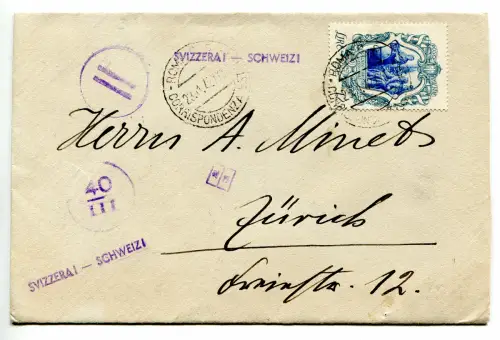 SVIZZERA! — SCHWEIZ!
CORRISPONDENZE
Herrn A. Minets
40
III
Zürich
SVIZZERA! — SCHWEIZ!
Freiestr. 12.